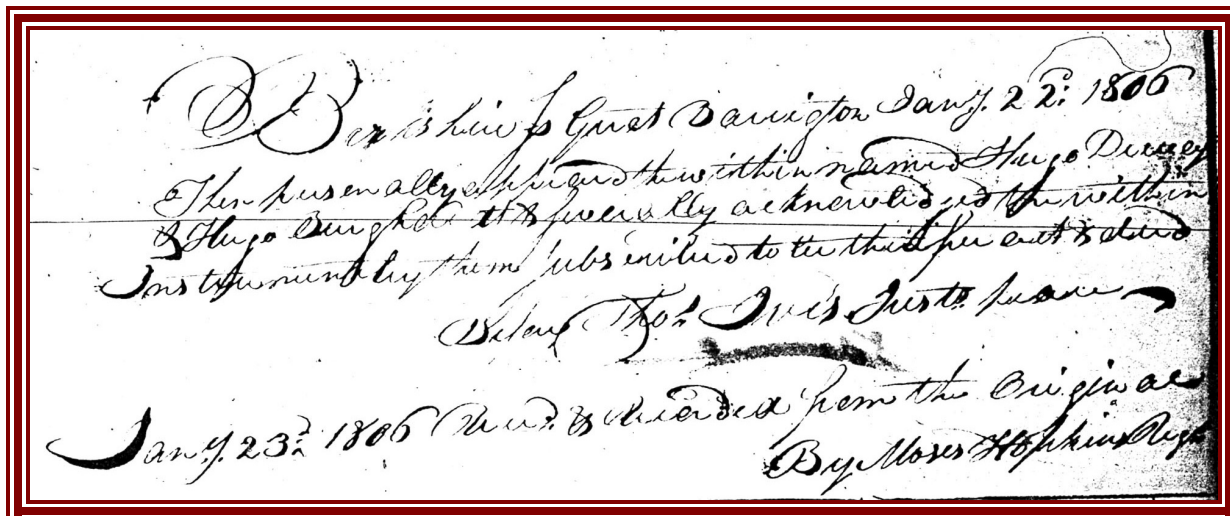 Berkshire ss Great Barrington Jany. 22d: 1806
Then personally appeared the within named Hugo Dewey
& Hugo Burghdt & severally acknowledged the within
Instrument by them subscribed to be their free act & deed
Before Thos. Ives Justs. peace
Jany. 23d. 1806 Recd. & Recorded from the Original
By Moses Hopkins Regr